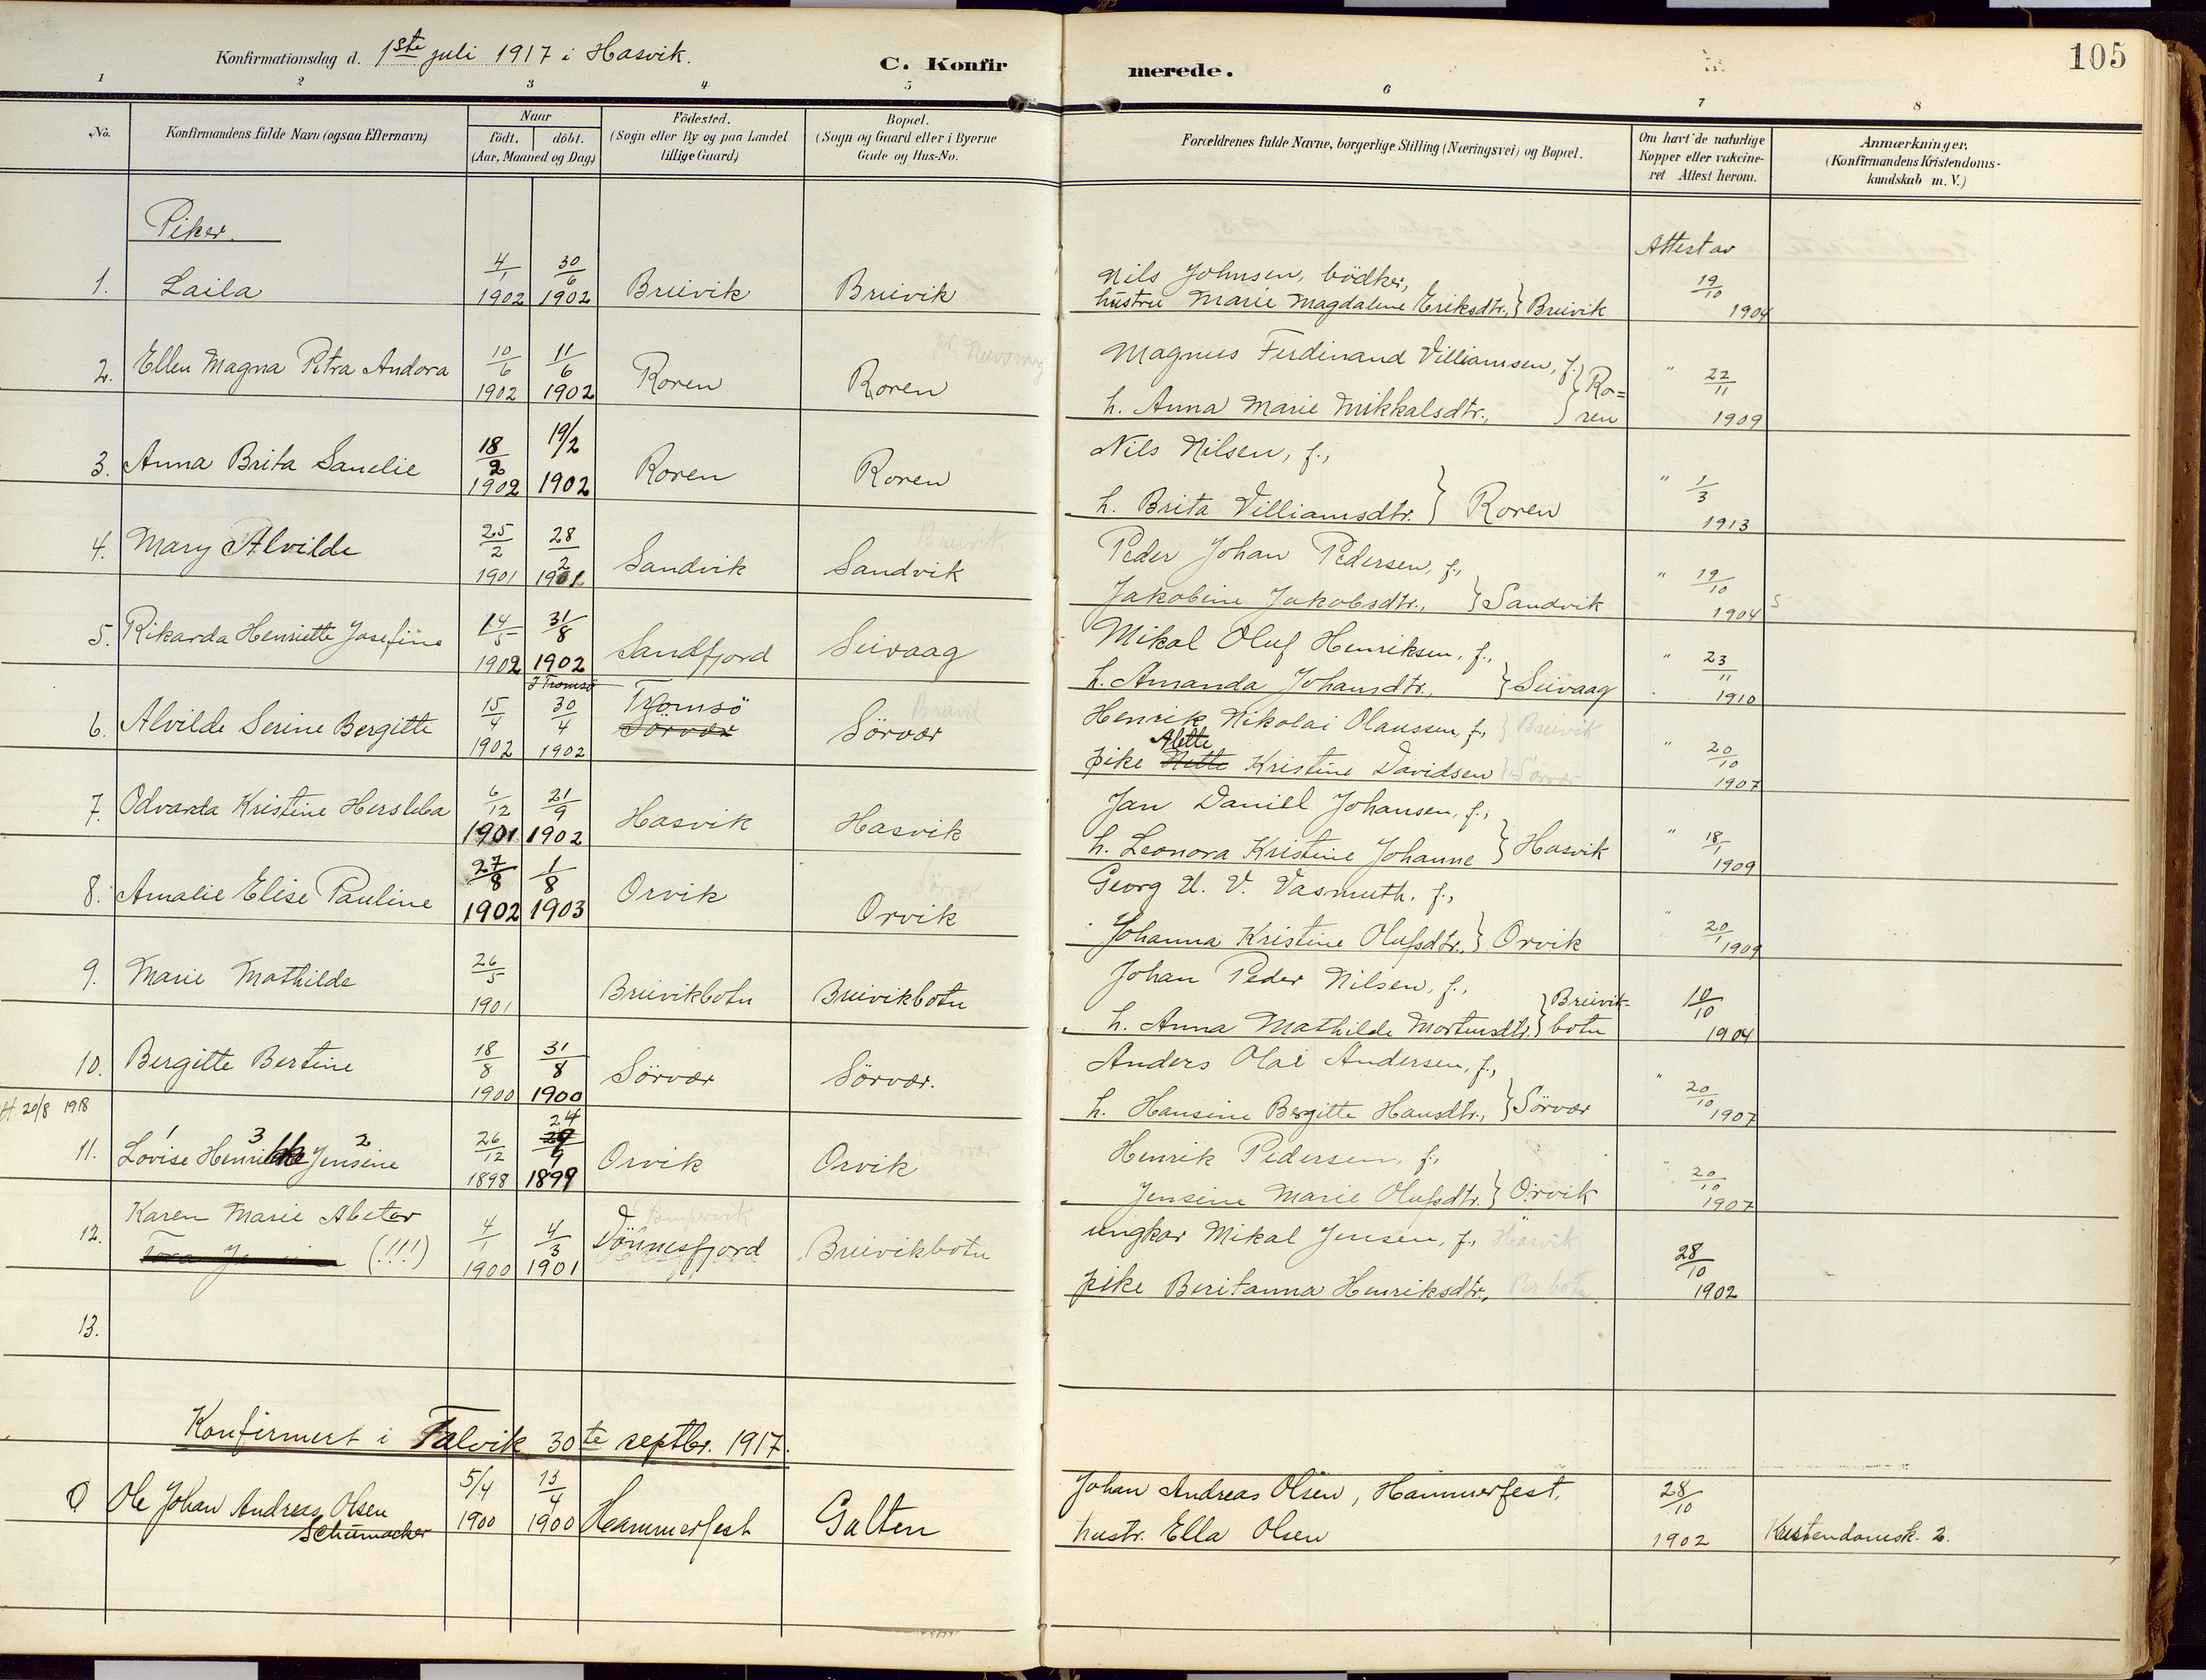 Konfirmationsdag d. 1ste juli 1917 i Hasvik.
C. Konfirmerede.
105
1 2 3 4 5 6 7 8
No.
Konfirmandens fulde Navn (ogsaa Efternavn)
Naar
födt. döbt.
(Aar, Maaned og Dag)
Födested.
(Sogn eller By og paa Landet tillige Gaard)
Bopæl.
(Sogn og Gaard eller i Byerne Gade og Hus-No.
Forældrenes fulde Navne, borgerlige Stilling (Næringsvei) og Bopæl.
Om havt de naturlige Kopper eller vakcineret. Attest herom.
Anmærkninger.
(Konfirmandens Kristendomskundskab m. V.)
Piker.
Attest av
1. Laila 4/1 1902 30/6 1902 Breivik Breivik Nils Johnsen, bödker, 19/10 1904
hustru Marie Magdalene Eriksdtr., } Breivik
2. Ellen Magna Petra Andora 10/6 1902 11/6 1902 Roren Roren Magnus Ferdinand Villiamsen, f. " 22/11 1909
h. Anna Marie Mikkalsdtr., } Ro=ren
3. Anna Brita Sanelie 18/2 1902 19/2 1902 Roren Roren Nils Nilsen, f., " 1/3 1913
h. Brita Villiamsdtr. } Roren
4. Mary Alvilde 25/2 1901 28/2 1901 Sandvik Breivik Sandvik Peder Johan Pedersen, f., " 19/10 1904
Jakobine Jakobsdtr., } Sandvik
5. Rikarda Henriette Josefine 14/5 1902 31/8 1902 Sandfjord Seivaag Mikal Oluf Henriksen, f., " 23/11 1910
h. Amanda Johansdtr., } Seivaag
6. Alvilde Serine Bergitte 15/4 1902 I Tromsö 30/4 1902 Tromsö Sörvær Sörvær Henrik Nikolai Olaussen, f., } Breivik " 20/10 1907
pike Alette Nette Kristine Davidsen } Sörvær
7. Odvarda Kristine Hersleba 6/12 1901 21/9 1902 Hasvik Hasvik Jan Daniel Johansen, f., " 18/1 1909
h. Leonora Kristine Johanne } Hasvik
8. Amalie Elise Pauline 27/8 1902 1/8 1903 Orvik Sörvær Orvik Georg U. V. Vasmuth. f., " 20/1 1909
Johanna Kristine Olufsdtr., } Orvik
9. Marie Mathilde 26/5 1901 Breivikbotn Breivikbotn Johan Peder Nilsen, f., 10/10 1904
h. Anna Mathilde Mortensdtr. } Breivik-botn
10. Bergitte Bertine 18/8 1900 31/8 1900 Sörvær Sörvær. Anders Olai Andersen, f., " 20/10 1907
h. Hansine Bergitte Hansdtr., } Sörvær
20/8 1918
11. Lovise Henrikke Jensine 1 3 2 26/12 1898 24 29/9 1899 Orvik Sörvær Orvik Henrik Pedersen, f., " 20/10 1907
Jensine Marie Olufsdtr. } Orvik
12. Karen Marie Abeter 4/1 1900 4/3 1901 Dönnesfjord Breivikbotn ungkar Mikal Jensen, f., Hasvik 28/10 1902
Tora (!!!) pike Beritanna Henriksdtr., Br.botn.
13.
Konfirmert i Talvik 30te septbr. 1917.
Ole Johan Andreas Olsen 5/4 1900 15/4 1900 Hammerfest Galten Johan Andreas Olsen, Hammerfest, 28/10 1902 Kristendomsk. 2.
Schumacker hustr. Ella Olsen